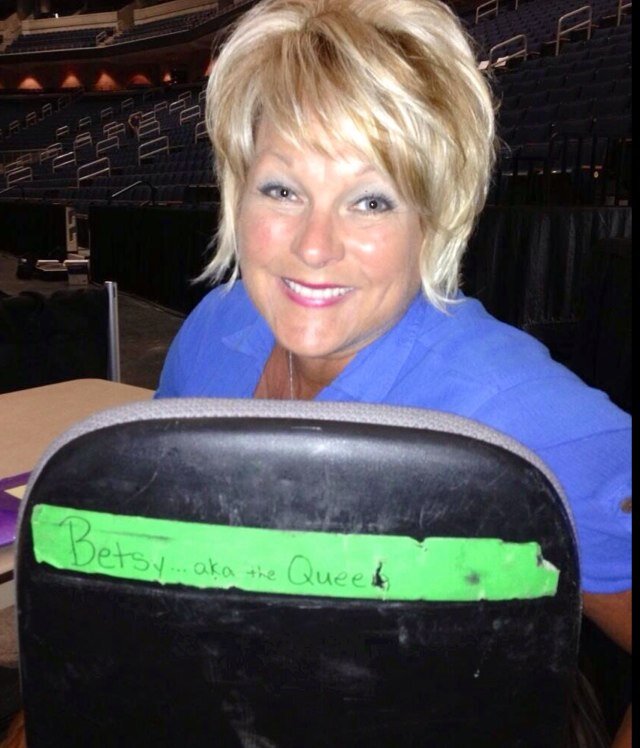 Betsy... aka the Queen